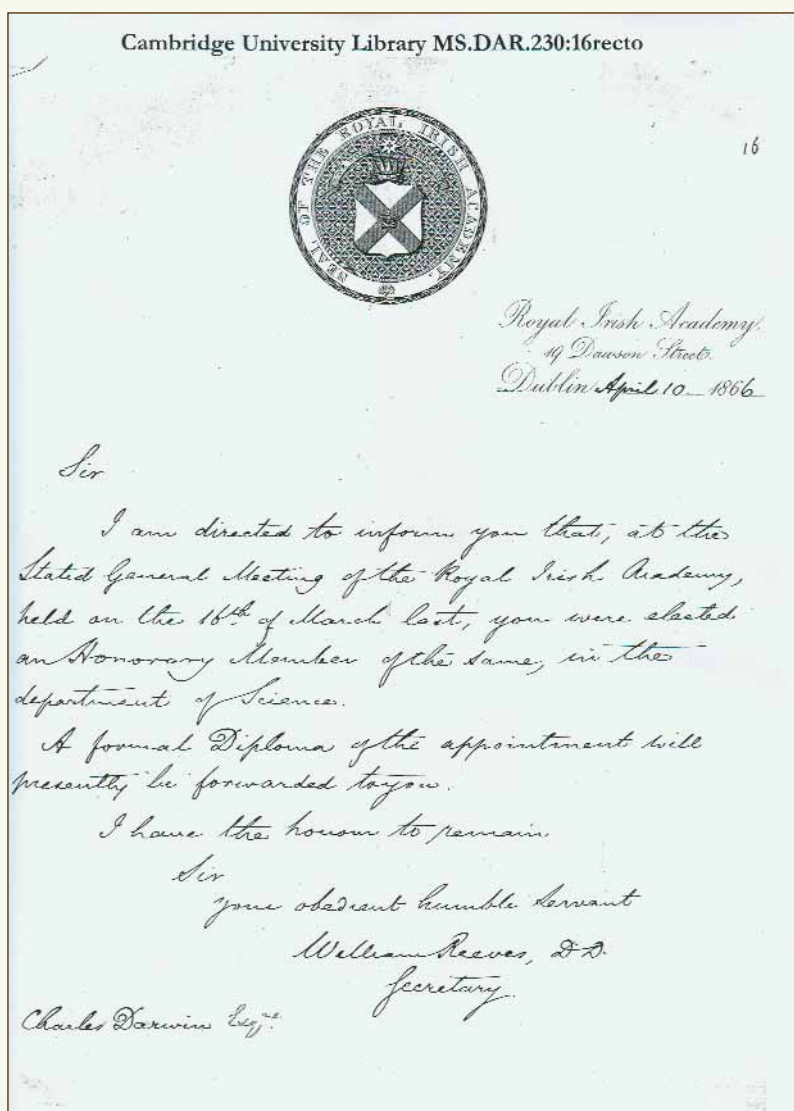 Cambridge University Library MS.DAR.230:16recto
16
SEAL OF THE ROYAL IRISH ACADEMY.
Royal Irish Academy.
19 Dawson Street.
Dublin April 10 1866
Sir
I am directed to inform you that, at the
Stated General Meeting of the Royal Irish Academy,
held on the 16th of March last, you were elected
an Honorary Member of the same, in the
department of Science.
A formal Diploma of the appointment will
presently be forwarded to you.
I have the honour to remain
Sir
your obedient humble Servant
William Reeves, D.D.
Secretary.
Charles Darwin Esqre